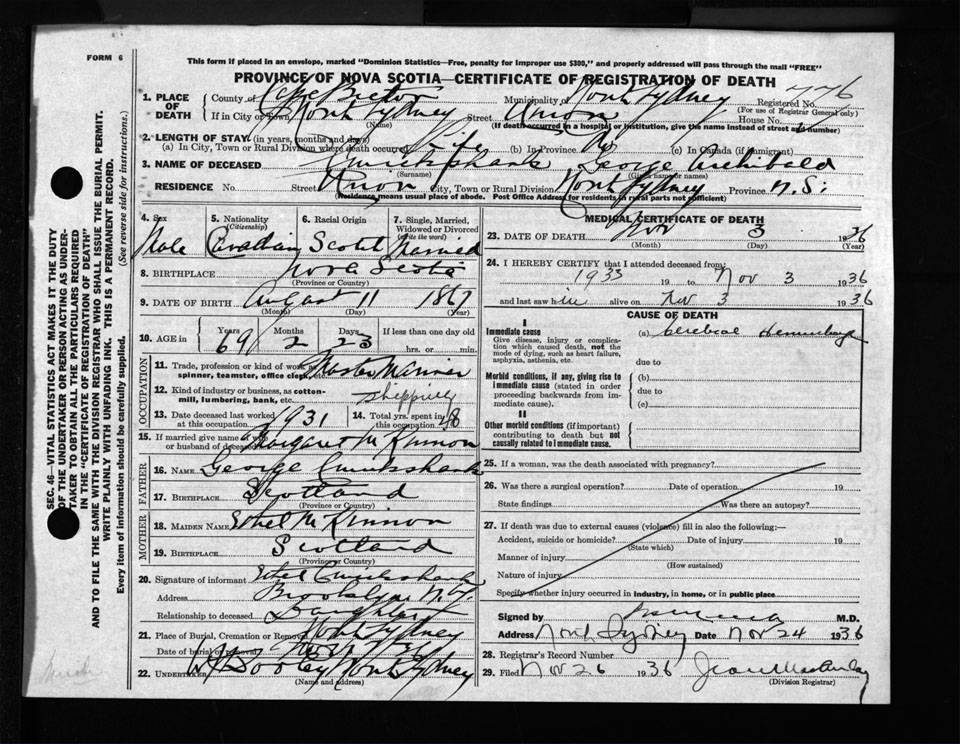 FORM 6
This form if placed in an envelope, marked "Dominion Statistics—Free, penalty for improper use $300," and properly addressed will pass through the mail "FREE"
PROVINCE OF NOVA SCOTIA—CERTIFICATE OF REGISTRATION OF DEATH
1. PLACE OF DEATH { County of Cape Breton Municipality of North Sydney Registered No. 776
(For use of Registrar General only)
If in City or Town North Sydney Street Union House No.
(Name) (If death occurred in a hospital or institution, give the name instead of street and number)
2. LENGTH OF STAY (in years, months and days)
(a) In City, Town or Rural Division where death occurred Life (b) In Province (c) In Canada (if immigrant)
3. NAME OF DECEASED Cruickshank George Archibald
(Surname) (Given name or names)
RESIDENCE No. Street Union City, Town or Rural Division North Sydney Province N.S.
(Residence means usual place of abode. Post Office Address for residents in rural parts not sufficient)
4. Sex 5. Nationality (Citizenship) 6. Racial Origin 7. Single, Married, Widowed or Divorced (write the word)
Male Canadian Scotch Married
8. BIRTHPLACE Nova Scotia
(Province or Country)
9. DATE OF BIRTH August 11 1867
(Month) (Day) (Year)
10. AGE in { Years Months Days If less than one day old
69 2 23 hrs. or min.
OCCUPATION
11. Trade, profession or kind of work as spinner, teamster, office clerk, etc. Master Mariner
12. Kind of industry or business, as cotton-mill, lumbering, bank, etc. shipping
13. Date deceased last worked at this occupation 1931 14. Total yrs. spent in this occupation 48
15. If married give name of wife or husband of deceased Margaret McKinnon
FATHER
16. NAME George Cruickshank
17. BIRTHPLACE Scotland
(Province or Country)
MOTHER
18. MAIDEN NAME Ethel McKinnon
19. BIRTHPLACE Scotland
(Province or Country)
20. Signature of informant Ethel Cruickshank
Address Brooklyn N.Y.
Relationship to deceased Daughter
21. Place of Burial, Cremation or Removal North Sydney
Date of burial or removal Nov
22. UNDERTAKER Dooley North Sydney
(Name and address)
MEDICAL CERTIFICATE OF DEATH
23. DATE OF DEATH Nov 3 1936
(Month) (Day) (Year)
24. I HEREBY CERTIFY that I attended deceased from:
1933 19 to Nov 3 1936
and last saw him alive on Nov 3 1936
CAUSE OF DEATH
I
Immediate cause (a) Cerebral Hemorrhage
Give disease, injury or complication which caused death, not the mode of dying, such as heart failure, asphyxia, asthenia, etc.
due to
Morbid conditions, if any, giving rise to immediate cause (stated in order proceeding backwards from immediate cause).
(b)
due to
(c)
II
Other morbid conditions (if important) contributing to death but not causally related to immediate cause.
25. If a woman, was the death associated with pregnancy?
26. Was there a surgical operation? Date of operation 19
State findings Was there an autopsy?
27. If death was due to external causes (violence) fill in also the following:—
Accident, suicide or homicide? Date of injury 19
(State which)
Manner of injury
(How sustained)
Nature of injury
Specify whether injury occurred in industry, in home, or in public place
Signed by M.D.
Address North Sydney Date Nov 24 1936
28. Registrar's Record Number
29. Filed Nov 26 1936
(Division Registrar)
SEC. 46—VITAL STATISTICS ACT MAKES IT THE DUTY
OF THE UNDERTAKER OR PERSON ACTING AS UNDER-
TAKER TO OBTAIN ALL THE PARTICULARS REQUIRED
IN THE "CERTIFICATE OF REGISTRATION OF DEATH"
AND TO FILE THE SAME WITH THE DIVISION REGISTRAR WHO SHALL ISSUE THE BURIAL PERMIT.
WRITE PLAINLY WITH UNFADING INK. THIS IS A PERMANENT RECORD.
Every item of information should be carefully supplied. (See reverse side for instructions.)